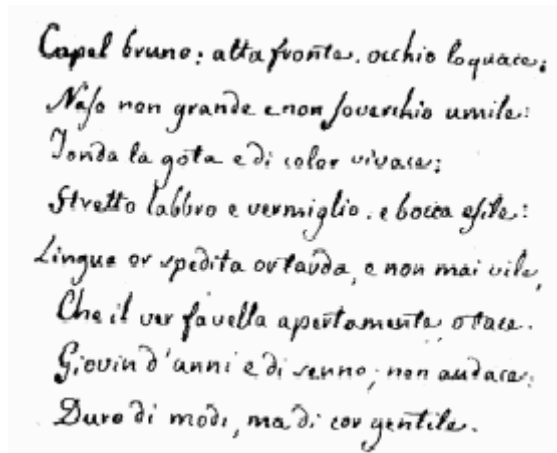 Capel bruno: alta fronte, occhio loquace:
Naso non grande e non soverchio umile:
Tonda la gota e di color vivace:
Stretto labbro e vermiglio, e bocca esile:
Lingua or spedita or tarda, e non mai vile,
Che il ver favella apertamente, o tace.
Giovin d'anni e di senno; non audace:
Duro di modi, ma di cor gentile.